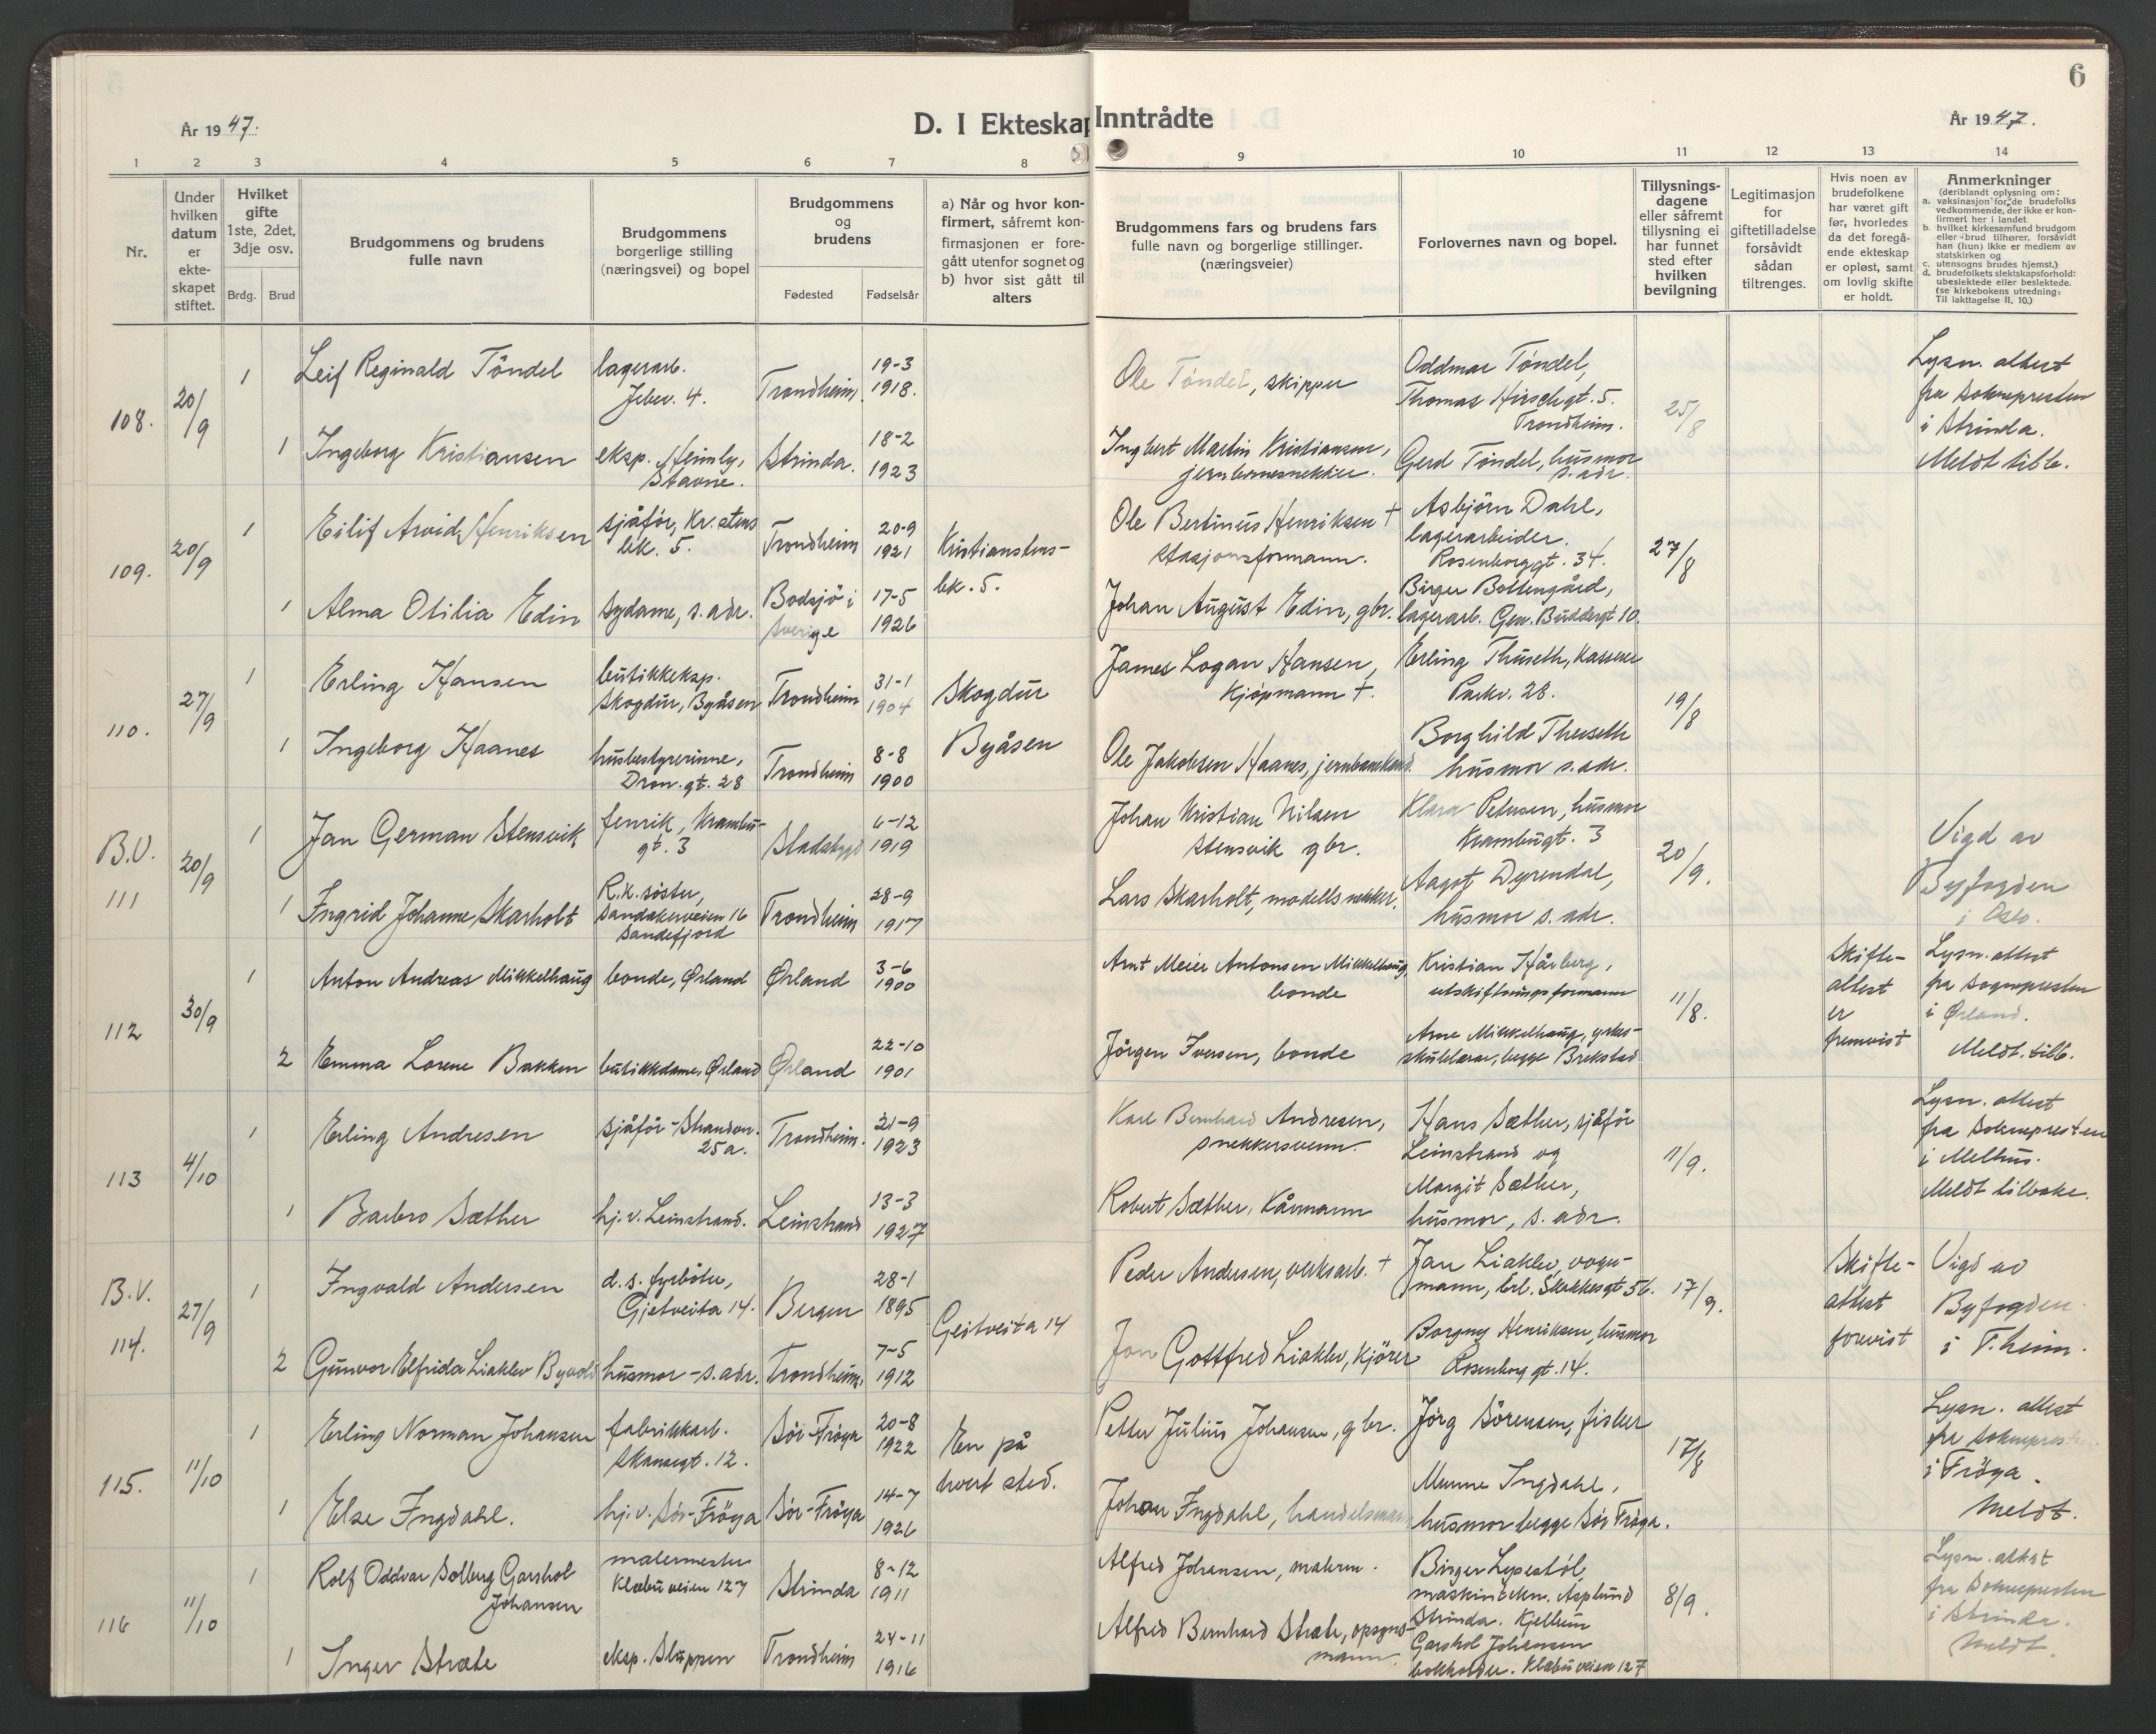 6
År 1947.
D. I Ekteskap Inntrådte
År 1947.
1 2 3 4 5 6 7 8 9 10 11 12 13 14
Nr.
Under hvilken datum er ekte-skapet stiftet.
Hvilket gifte 1ste, 2det, 3dje osv.
Brdg. Brud
Brudgommens og brudens fulle navn
Brudgommens borgerlige stilling (næringsvei) og bopel
Brudgommens og brudens
Fødested Fødselsår
a) Når og hvor kon-firmert, såfremt kon-firmasjonen er fore-gått utenfor sognet og
b) hvor sist gått til alters
Brudgommens fars og brudens fars fulle navn og borgerlige stillinger. (næringsveier)
Forlovernes navn og bopel.
Tillysnings-dagene eller såfremt tillysning ei har funnet sted efter hvilken bevilgning
Legitimasjon for giftetilladelse forsåvidt sådan tiltrenges.
Hvis noen av brudefolkene har været gift før, hvorledes da det foregå-ende ekteskap er opløst, samt om lovlig skifte er holdt.
Anmerkninger
(deriblandt oplysning om:
a. vaksinasjon for de brudefolks vedkommende, der ikke er kon-firmert her i landet
b. hvilket kirkesamfund brudgom eller brud tilhører, forsåvidt han (hun) ikke er medlem av statskirken og
c. utensogns brudes hjemst.)
d. brudefolkets slektskapsforhold: ubeslektede eller beslektede.
(se kirkebokens utredning: Til iakttagelse II, 10.)
108. 20/9
1 Leif Reginald Töndel lagerarb. Trondheim. 19-3 1918.
Ole Töndel, skipper
Oddmar Töndel, Thomas Hirschgt. 5. Trondheim.
25/8
Lysn. attest fra sokнepresten i Strinda. Meldt tilb.
1 Ingeborg Kristiansen eksp. Heimly, Stavne. Strinda. 18-2 1923
Ingbert Martin Kristiansen,
Gerd Töndel, husmor s. adr.
109. 20/9
1 Eilif Arvid Henriksen sjåfør, Kr.stens bk. 5. Trondheim 20-9 1921
Kristianstens-bk. 5.
Ole Bertinus Henriksen + stasjonsformann.
Asbjörn Dahl, lagerarbeider. Rosenborggt. 34.
27/8
1 Alma Otilia Edin sydame, s. adr. Bodsjö i Sverige 17-5 1926
Johan August Edin, gbr.
Birger Bottengård, lagerarb. Gen. Buddesgt 10.
110. 27/9
1 Erling Hansen butikkeksp. Skogdur, Byåsen Trondheim 31-1 1904
Skogdur Byåsen
James Logan Hansen, Kjöpmann +.
Erling Thuseth, Kasserer Parkv. 28.
19/8
1 Ingeborg Haanes husbestyrerinne, Dron. gt. 28 Trondheim 8-8 1900
Ole Jakobsen Haanes,
Borghild Thuseth husmor s. adr.
B.V. 111 20/9
1 Jan German Stensvik fenrik, Krambu-gt. 3 Stadsbygd 6-12 1919
Johan Kristian Nilsen Stensvik gbr.
Klara Petersen, husmor Krambugt. 3
20/9.
Vigd av Byfogden i Oslo.
1 Ingrid Johanne Skarholt R.k. söster, Sandakerveien 16 Sandefjord Trondheim 28-9 1917
Lars Skarholt, modellsnekker.
Aagot Dyrendal, husmor s. adr.
112 30/9
1 Anton Andreas Mikkelhaug bonde, Ørland Ørland 3-6 1900
Arnt Meier Antonsen Mikkelhaug, bonde
Kristian Hårberg, utskiftningsformann
11/8.
Skifte-attest er fremvist
Lysn. attest fra sognepresten i Ørland. Meldt. tilb.
2 Emma Lorene Bakken butikkdame, Ørland Ørland 22-10 1901
Jörgen Iversen, bonde
Arne Mikkelhaug, yrkes-skolelærer, begge Brekstad
113 4/10
1 Erling Andresen sjåför - Strandv. 25a. Trondheim. 21-9 1923
Karl Bernhard Andresen, snekkersvenn.
Hans Sæther, sjåför Leinstrand og
11/9.
Lysn. attest fra sokнepresten i Melhus. Meldt tilbake.
1 Barbro Sæther hj. v. Leinstrand. Leinstrand 13-3 1927
Robert Sæther, Kårmann
Margit Sæther, husmor, s. adr.
B.V. 114. 27/9
1 Ingvald Andersen d.s. fyrböter, Gjetveita 14. Bergen 28-1 1895
Geitveita 14
Peder Andersen, verksarb. +
Jan Liaklev, vogn-mann,
17/9.
Skifte-attest forevist
Vigd av Byfogden i T.heim.
2 Gunvor Elfrida Liaklev husmor - s. adr. Trondheim. 7-5 1912
Jon Gottfred Liaklev, kjörer
Borgny Henriksen, husmor Rosenborg gt. 14.
115. 11/10
1 Erling Norman Johansen fabrikkarb. Skansegt. 12. Sör-Fröya 20-8 1922
En på hvert sted.
Petter Julius Johansen, gbr.
Jörg Sörensen, fisker
17/8
Lysn. attest fra sokнeprest i Fröya. Meldt.
1 Else Ingdahl. hj. v. Sör-Fröya Sör-Fröya 14-7 1926
Johan Ingdahl, handelsmann
Ingdahl, husmor begge Sör Fröya.
116 11/10
1 Rolf Oddvar Solberg Garshol Johansen malermester Klæbuveien 127 Strinda 8-12 1911
Alfred Johansen, malerm.
Birger Lysestöl, maskintekn. Asplund Strinda.
8/9.
Lysn. attest fra sokнepresten i Strinda. Meldt.
1 Inger Stræte eksp. Sluppen Trondheim 24-11 1916
Alfred Bernhard Stræte, opsyns-mann.
Kjellrun Garshol Johansen bokholder. Klæbuveien 127